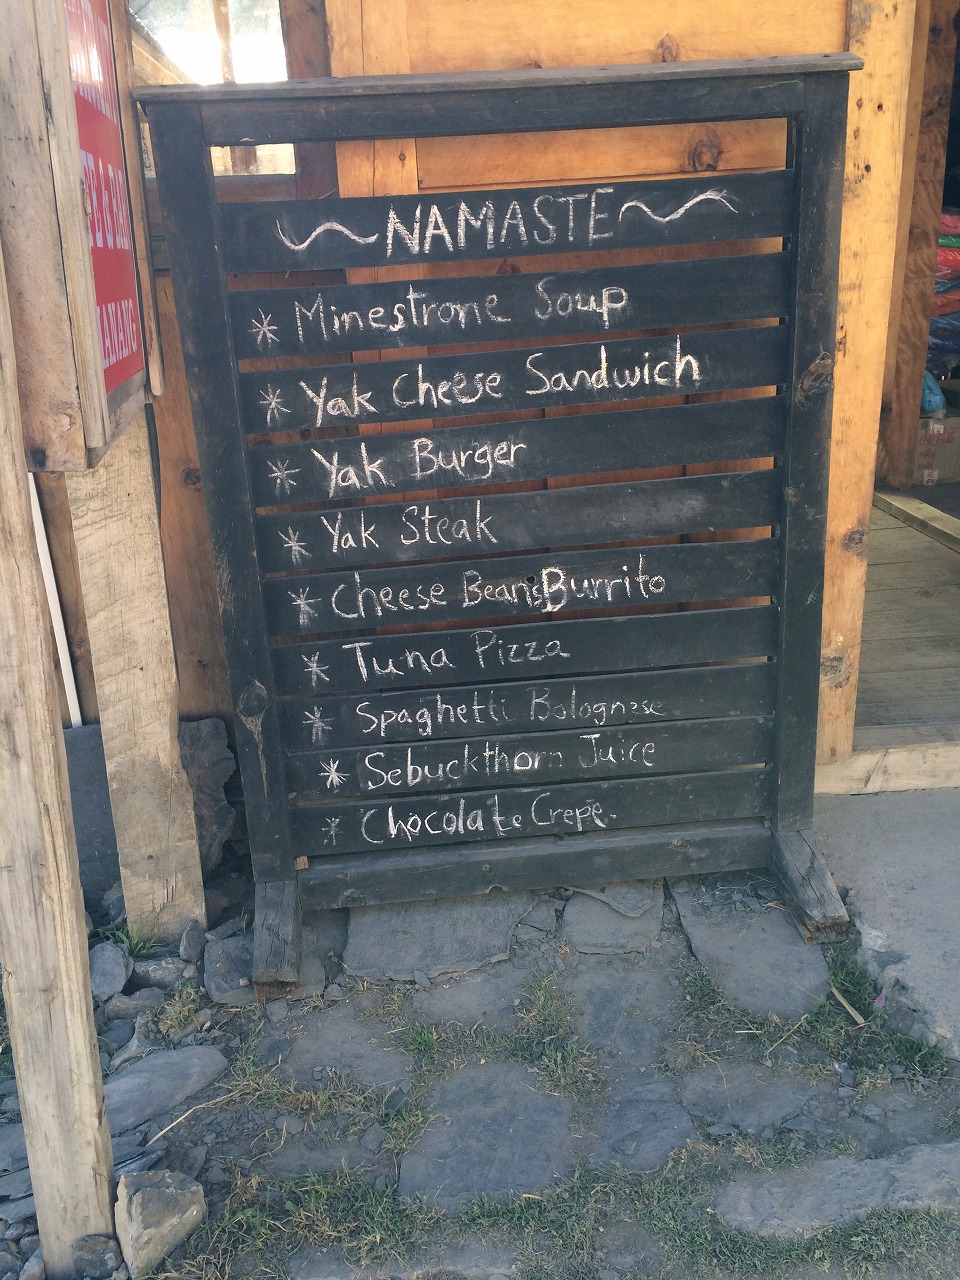 & BAR
MANANG
~NAMASTE~
* Minestrone Soup
* Yak Cheese Sandwich
* Yak Burger
* Yak Steak
* Cheese Beans Burrito
* Tuna Pizza
* Spaghetti Bolognese
* Sebuckthorn Juice
* Chocolate Crepe.